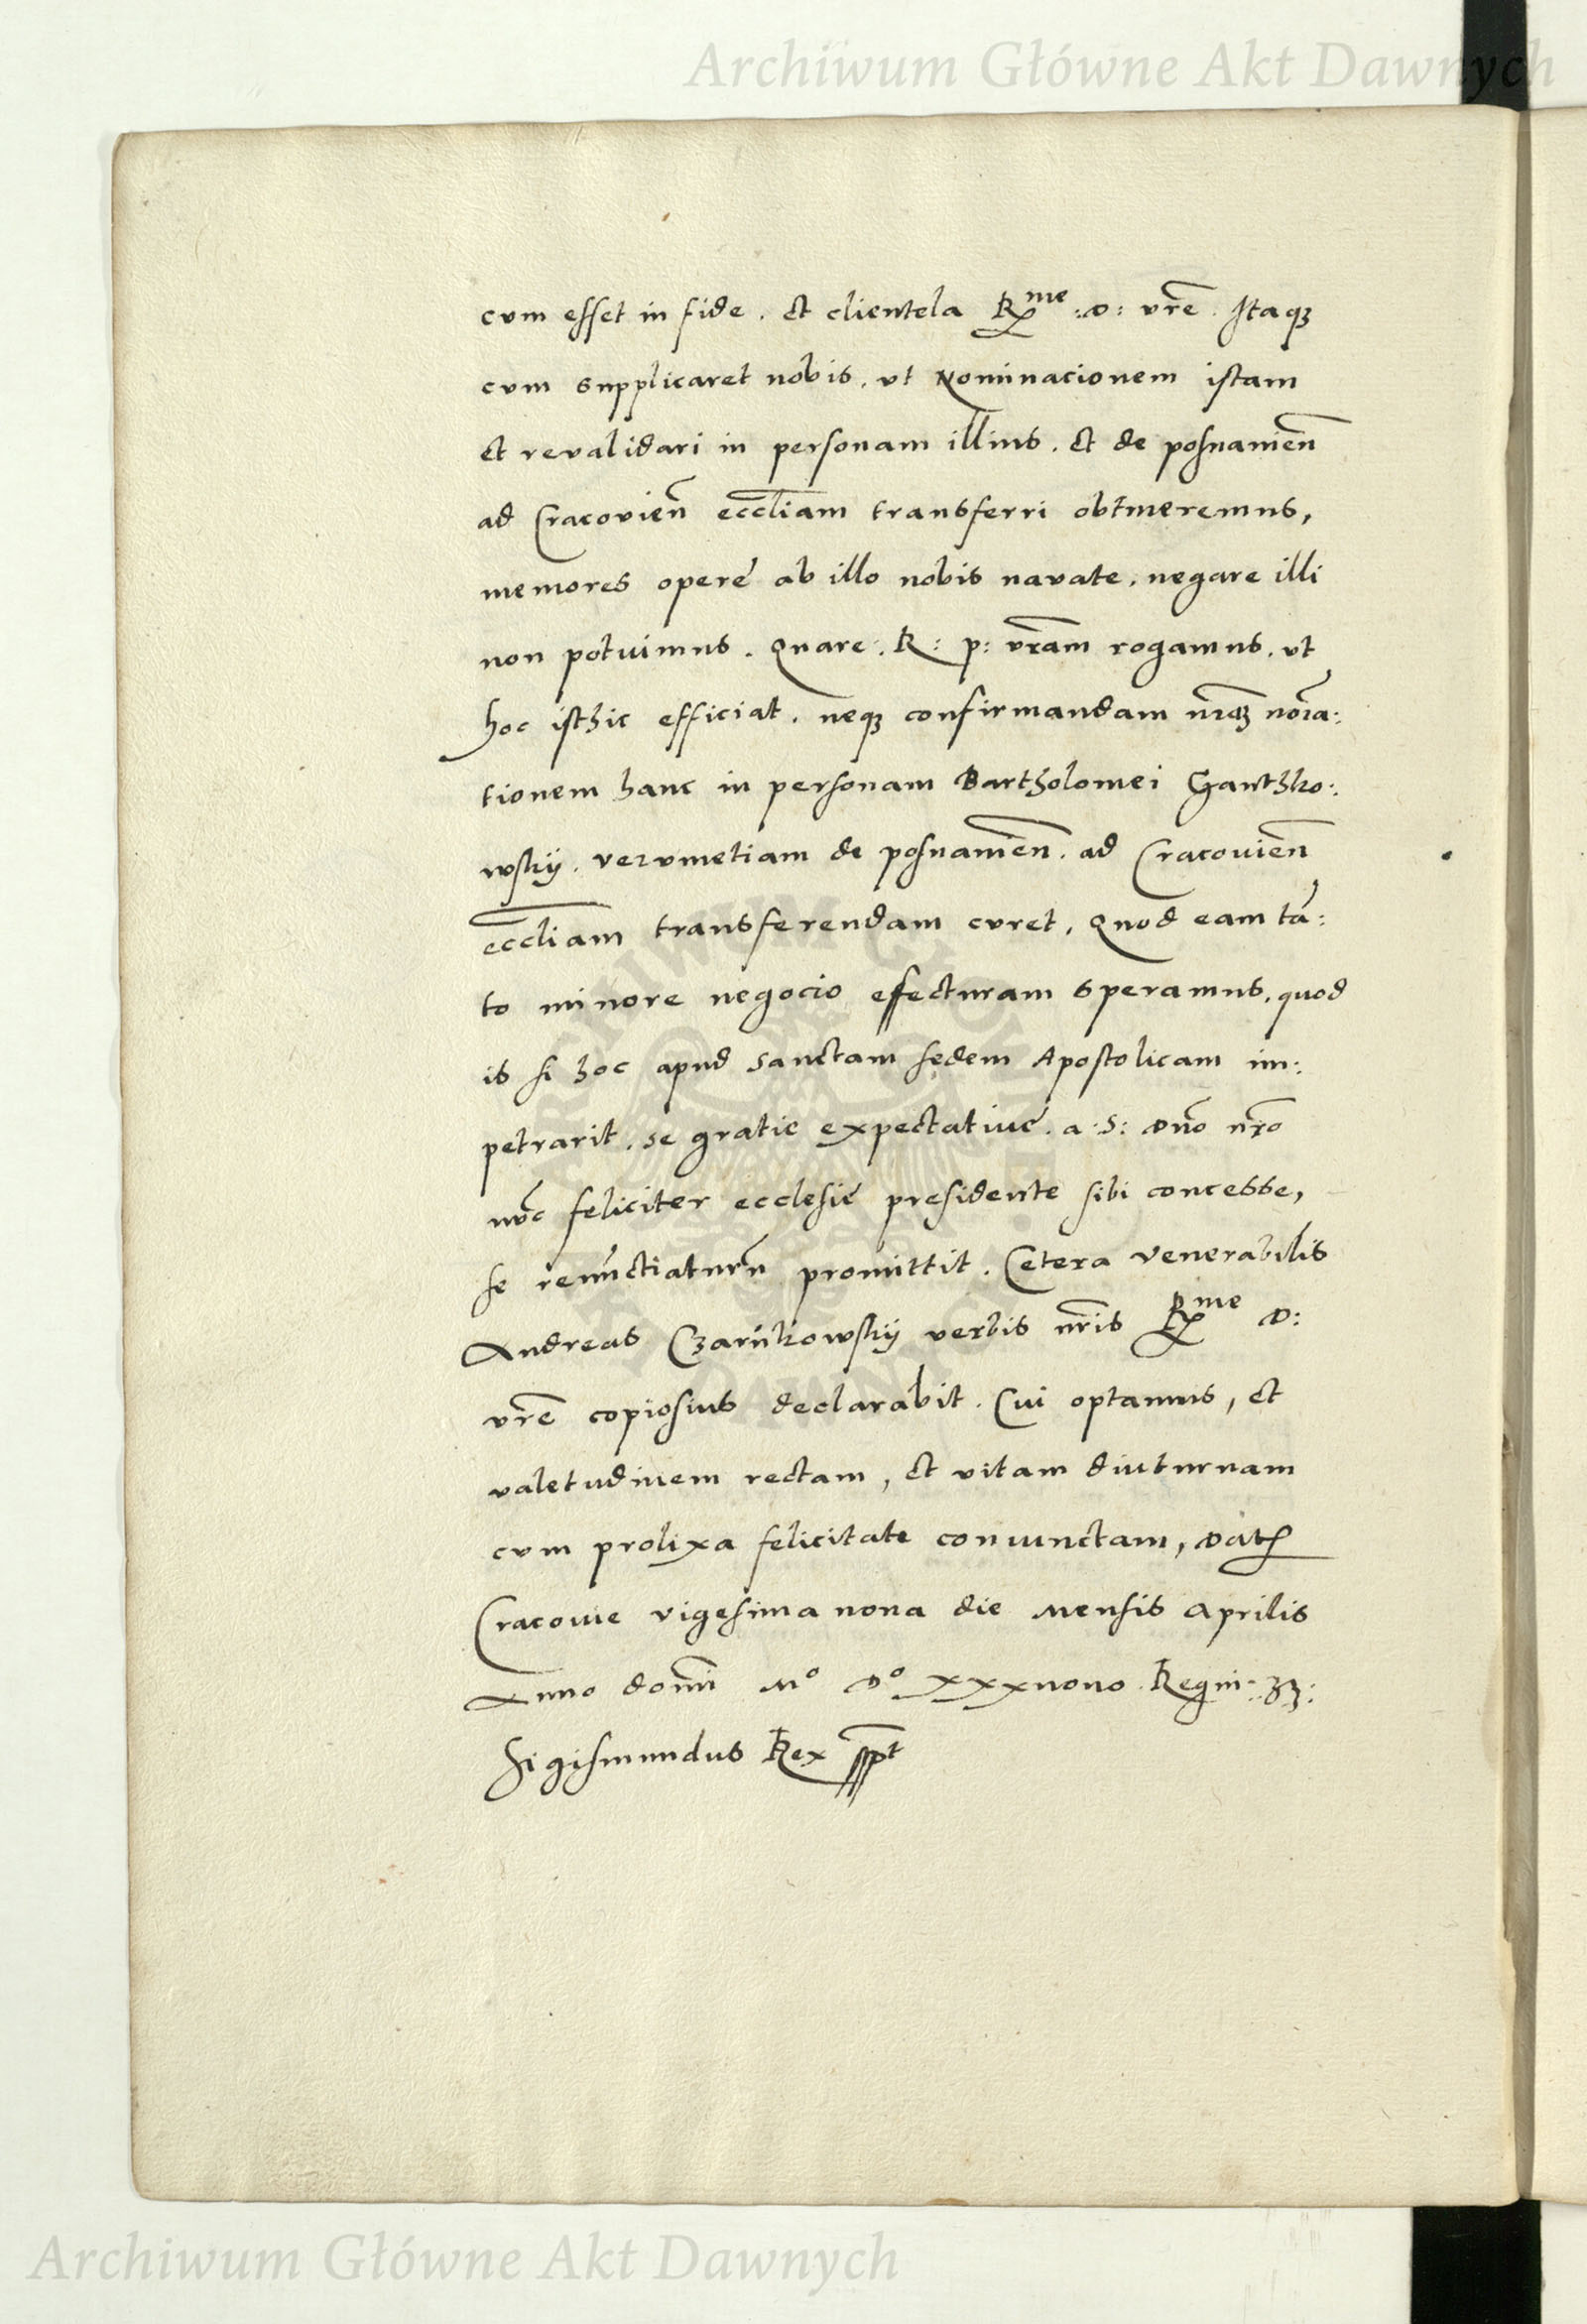 Archiwum Główne Akt Dawnych
cum esset in fide. et clientela R^me :D: vrē. Itaqʒ
cum supplicaret nobis, vt Nominacionem istam
et revalidari in personam illius. et de posnanien̄
ad Cracovien̄ eccliam transferri obtineremus,
memores opere ab illo nobis navate, negare illi
non potuimus. Quare: R: p: vram rogamus, vt
hoc isthic efficiat. neqʒ confirmandam nrāʒ noīa:
tionem hanc in personam Bartholomei Ganthko:
wskÿ. verumetiam de posnanien̄. ad Cracouien̄
eccliam transferendam curet. Quod eam tā:
to minore negocio effecturam speramus, quod
is si hoc apud sanctam sedem Apostolicam im:
petrarit. se gratie expectative. a. S: Dn̄o nr̄o
nūc feliciter ecclesie presidente sibi concesse,
se renūctiaturū promittit. Cetera venerabilis
Andreas Czarńkowskÿ verbis nr̄is R^me D:
vrē copiosius declarabit. Cui optamus, et
valetudinem rectam, et vitam diuturnam
cum prolixa felicitate coniunctam, Dat
Cracovie vigesima nona die Mensis Aprilis
Anno domī Mº Dº xxxnono. Regni: 33:
Sigismundus Rex sspt
Archiwum Główne Akt Dawnych